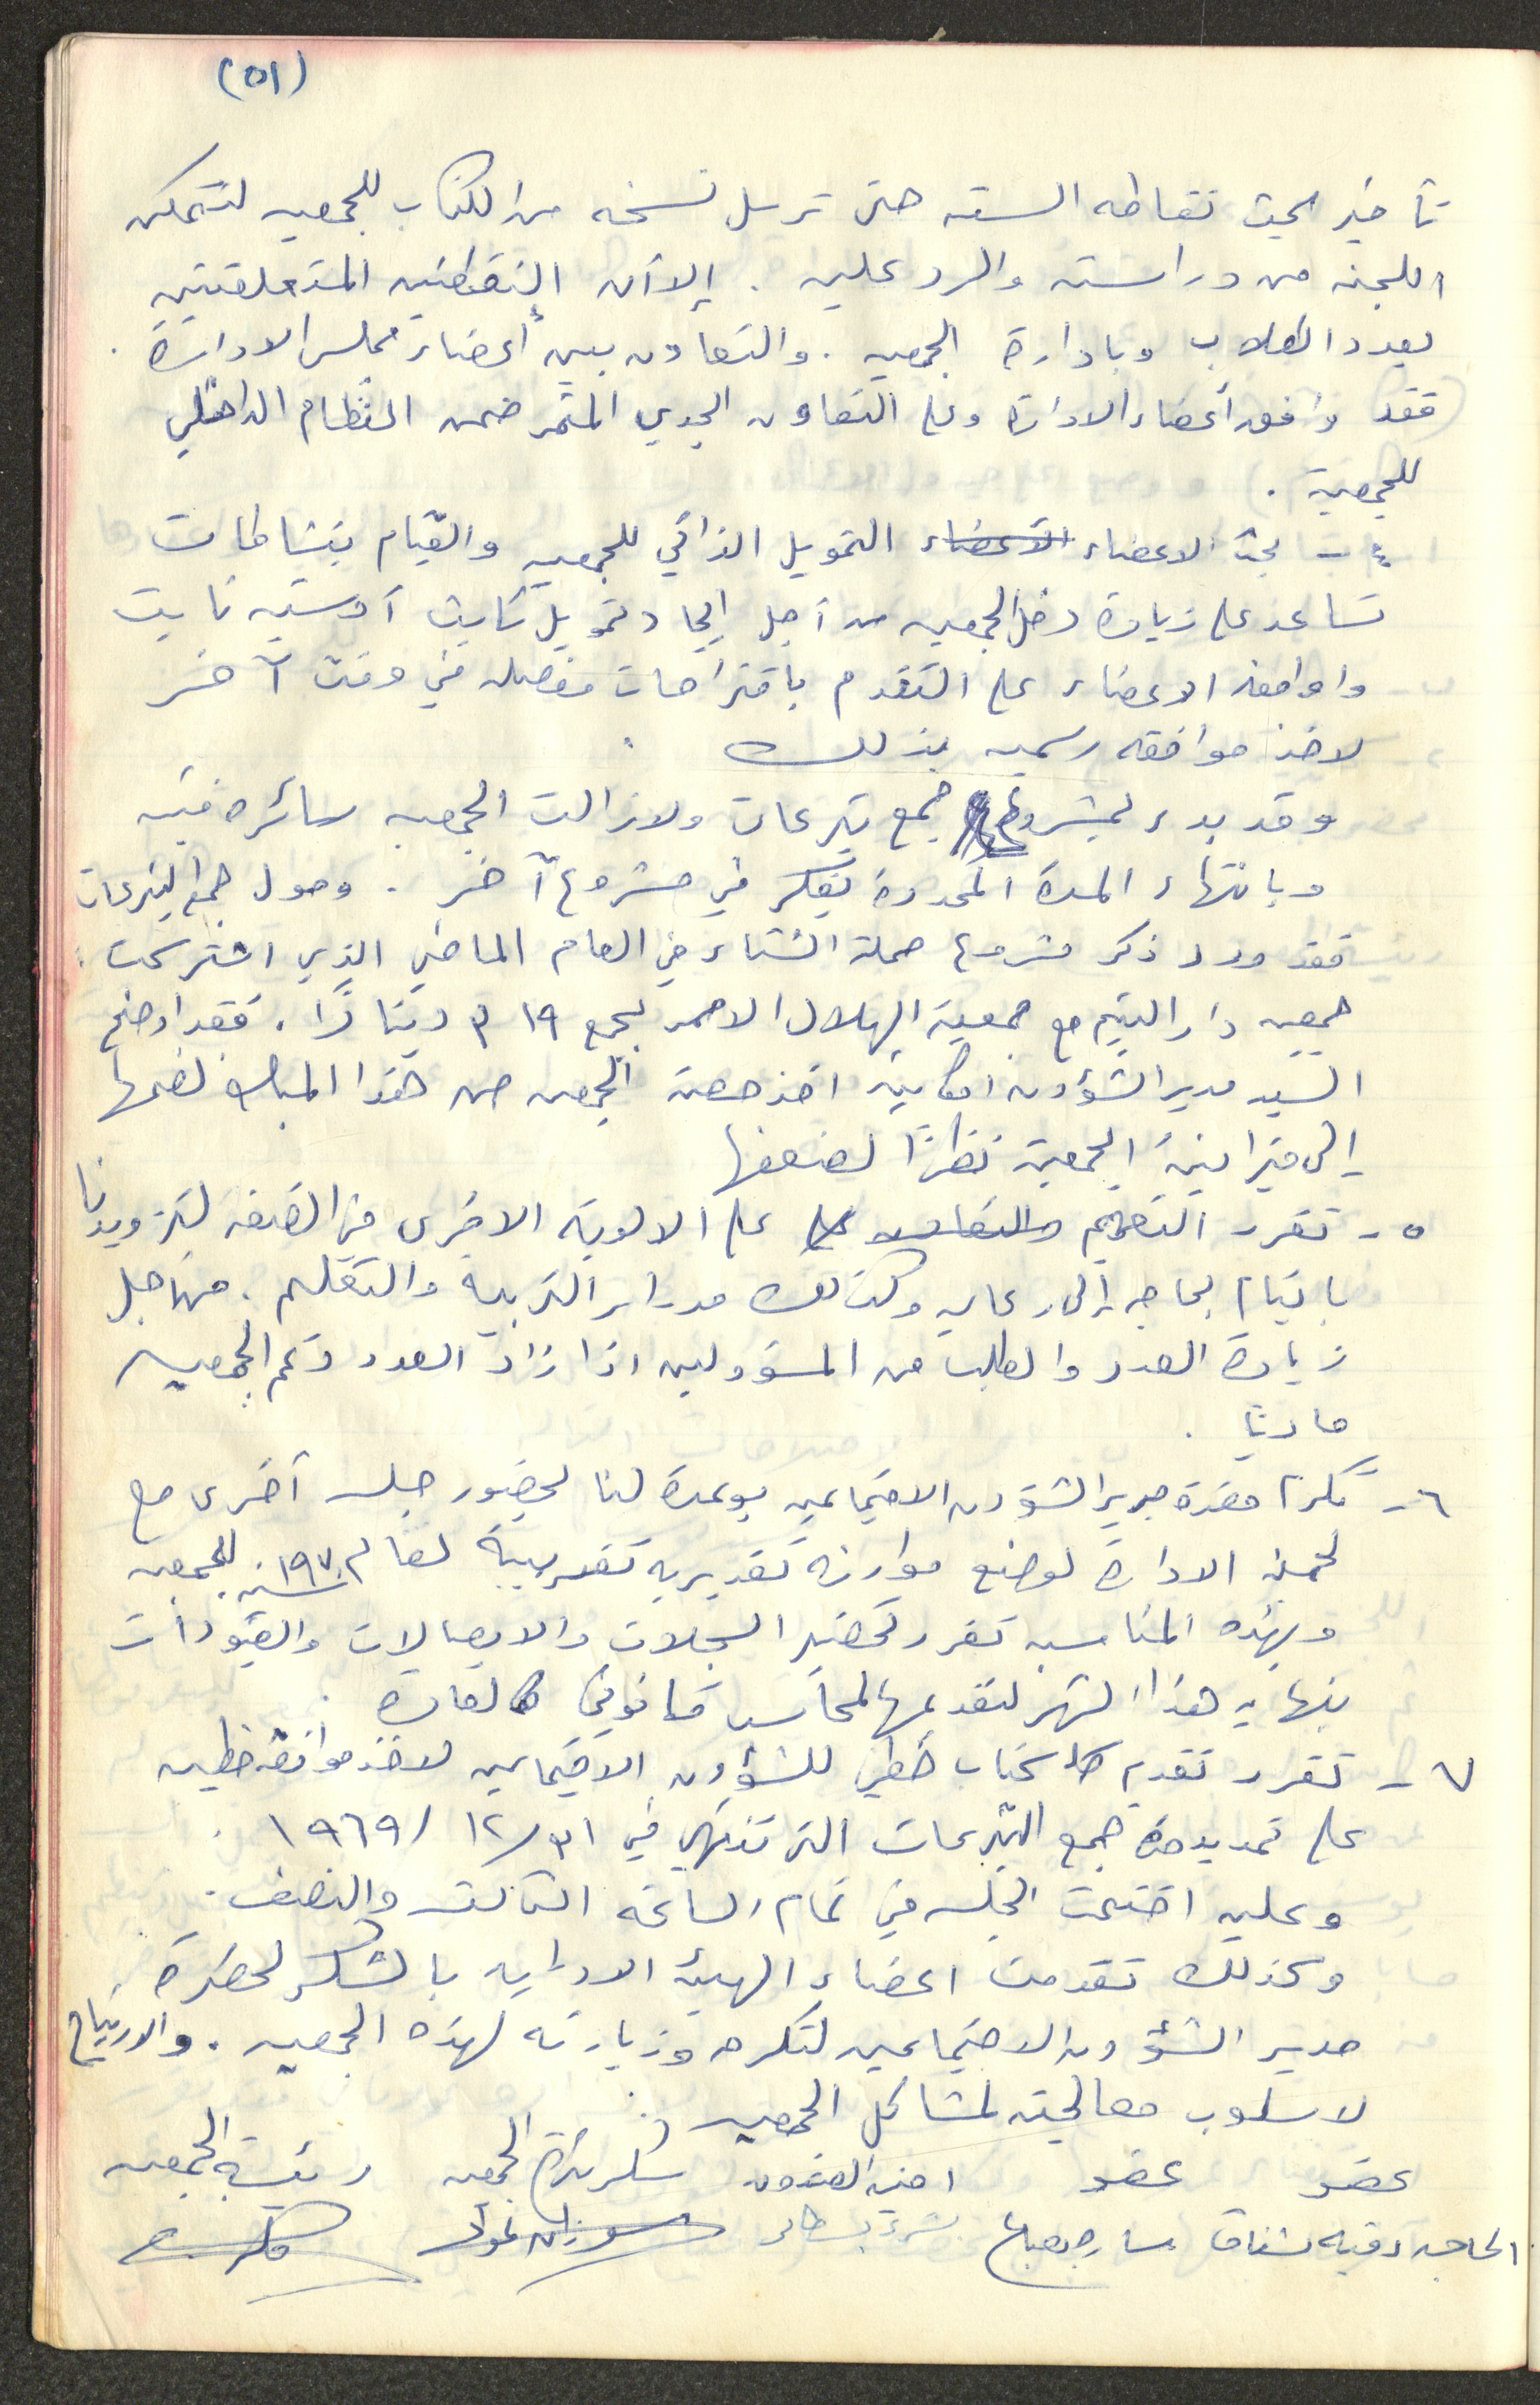 (٥١)
تأخير بحث نقاطه الستة حتى ترسل نسخه من الكتاب للجمعيه لتتمكن
اللجنه من دراسته والرد عليه . إلا أن النقطتين المتعلقتين
بعدد الطلاب وبادارة الجمعيه . والتعاون بين أعضاء مجلس الادارة .
فقد وافق أعضاء الادارة وعلى التعاون الجدي المثمر ضمن النظام الداخلي
للجمعية .
٤ - بحث الاعضاء الاعضاء التمويل الذاتي للجمعيه والقيام بنشاطات
تساعد على زيادة دخل الجمعيه من أجل إيجاد تمويل ثابت أو شبه ثابت
واوافق الاعضاء على التقدم باقتراحات مفصله في وقت آخر
لاخذ موافقه رسميه بذلك .
وقد بدء بمشروع جمع تبرعات ولازالت الجمعيه سائره فيه
وبانتهاء المدة المحدودة يفكر في مشروع آخر . وحول جمع التبرعات
فقد ورد ذكر مشروع حملة الشتاء في العام الماضي الذي اشتركت
جمعيه دار اليتيم مع جمعية الهلال الاحمر بجمع ٣١٩ دينارًا . فقد اوضح
السيد مدير الشؤون امكانية اخذ حصة الجمعيه من هذا المبلغ لضمها
إلى ميزانية الجمعية نظرًا لضعفها
٥ - تقرر التعميم والتعاون على على الالوية الاخرى في الضفه لتزويدنا
بايتام بحاجه إلى رعايه وكذلك مدراء التربية والتعليم . من اجل
زيادة العدد والطلب من المسؤولين اذا زاد العدد دعم الجمعيه
ماديًا .
٦ - تكرم حضرة مدير الشؤون الاجتماعيه بوعدة لنا لحضور جلسه أخرى مع
لجنة الادارة لوضع موازنه تقديريه تقريبية لعام ١٩٧٠ للجمعيه
وبهذه المناسبه تقرر تحضير السجلات والايصالات والقيودات
بنهايه هذا الشهر لتقديمها لمحاسب قانوني كالعادة .
٧ - تقرر تقديم كتاب خطي للشؤون الاجتماعيه لاخذ موافقه خطيه
على تمديد مدة جمع التبرعات التي تنتهي في ٣١ / ١٢ / ١٩٦٩ .
وعليه اختتمت الجلسه في تمام الساعه الثالثه والنصف .
وكذلك تقدمت اعضاء الهيئه الاداريه بالشكر لحضرة
مدير الشؤون الاجتماعيه لتكرمه وزيارته لهذه الجمعيه . والارتياح
لاسلوب معالجته لمشاكل الجمعيه .
عضو عضو امينه الصندوق سكرتيرة الجمعيه رئيسة الجمعيه
الحاجه رقيه شناق ساره